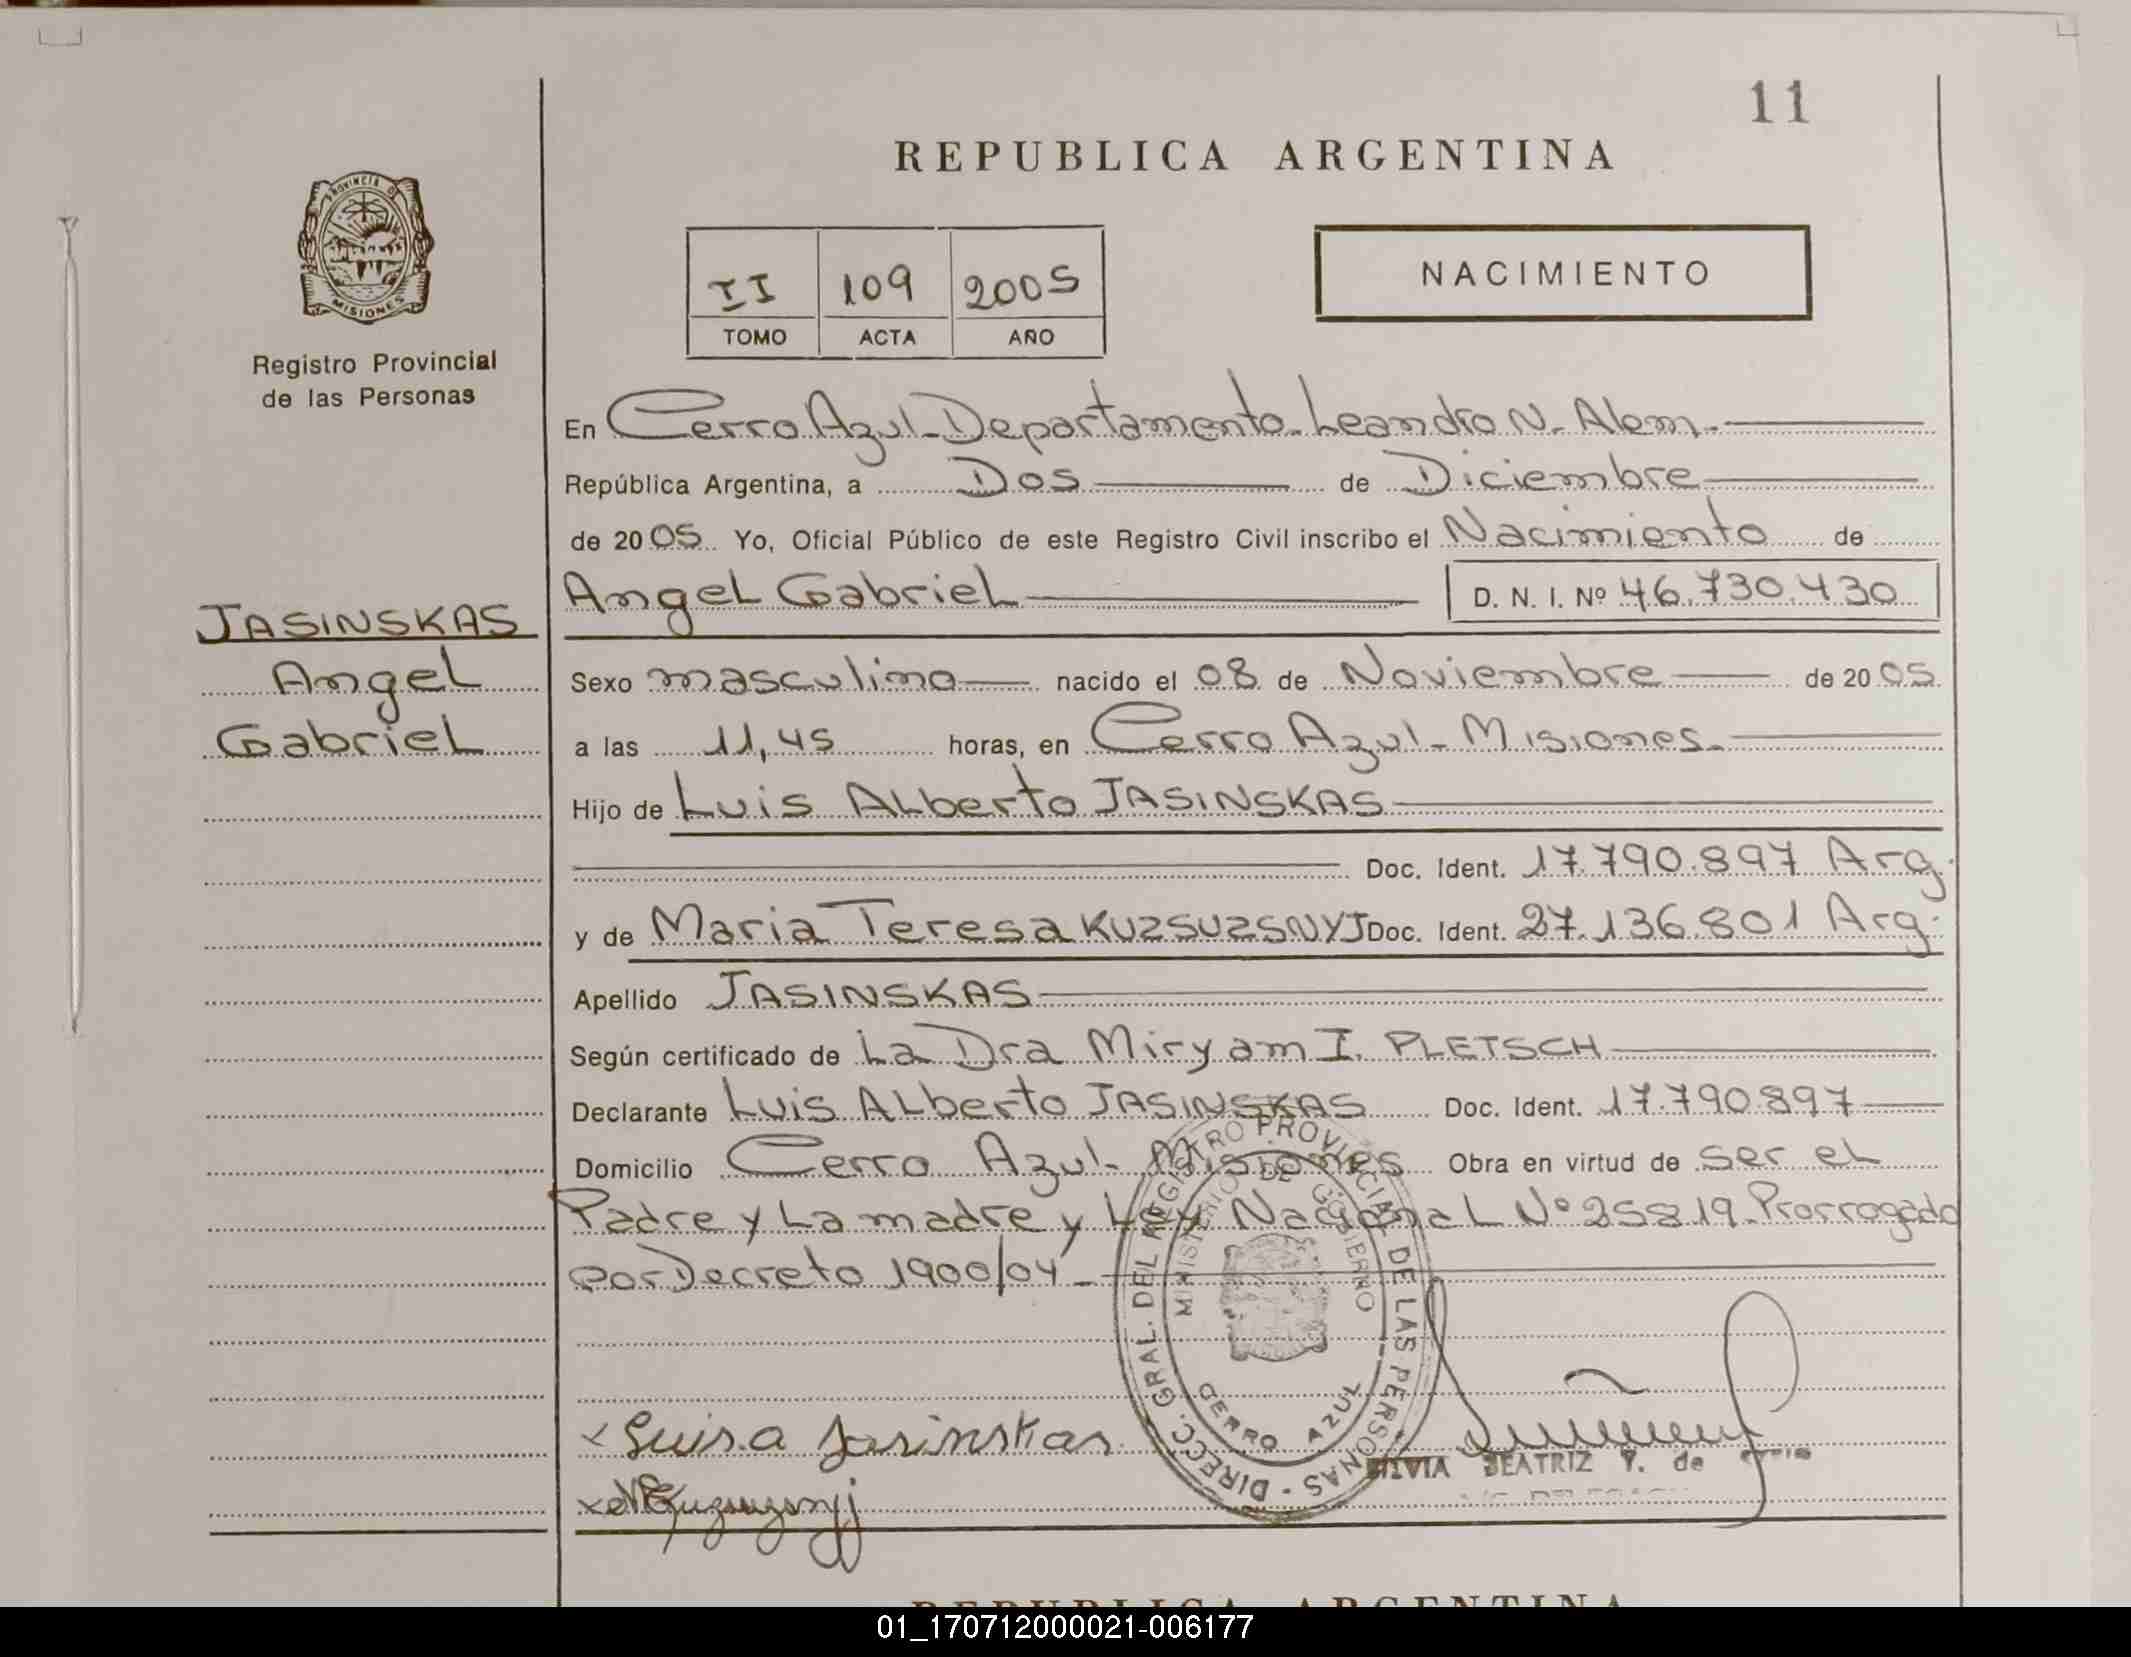 11
REPUBLICA ARGENTINA
PROVINCIA DE
MISIONES
Registro Provincial
de las Personas
II 109 2005
TOMO ACTA AÑO
NACIMIENTO
En Cerro Azul - Departamento - Leandro N. Alem.
República Argentina, a Dos de Diciembre
de 2005 Yo, Oficial Público de este Registro Civil inscribo el Nacimiento de
JASINSKAS
Angel
Gabriel
Angel Gabriel D. N. I. Nº 46.730.430
Sexo masculino nacido el 08 de Noviembre de 2005
a las 11,45 horas, en Cerro Azul - Misiones.
Hijo de Luis Alberto JASINSKAS
Doc. Ident. 17.790.897 Arg.
y de Maria Teresa KUZSUZSNYJ Doc. Ident. 27.136.801 Arg.
Apellido JASINSKAS
Según certificado de La Dra Miryam I. PLETSCH
Declarante Luis Alberto JASINSKAS Doc. Ident. 17.790.897
Domicilio Cerro Azul - Misiones Obra en virtud de ser el
Padre y La madre y Ley Nacional Nº 25819 - Prorrogado
por Decreto 1900/04 -
DIRECC. GRAL. DEL REGISTRO PROVINCIAL DE LAS PERSONAS
MINISTERIO DE GOBIERNO
CERRO AZUL
x Luis.a Jasinskas
SILVIA BEATRIZ de
REPUBLICA ARGENTINA
01_170712000021-006177